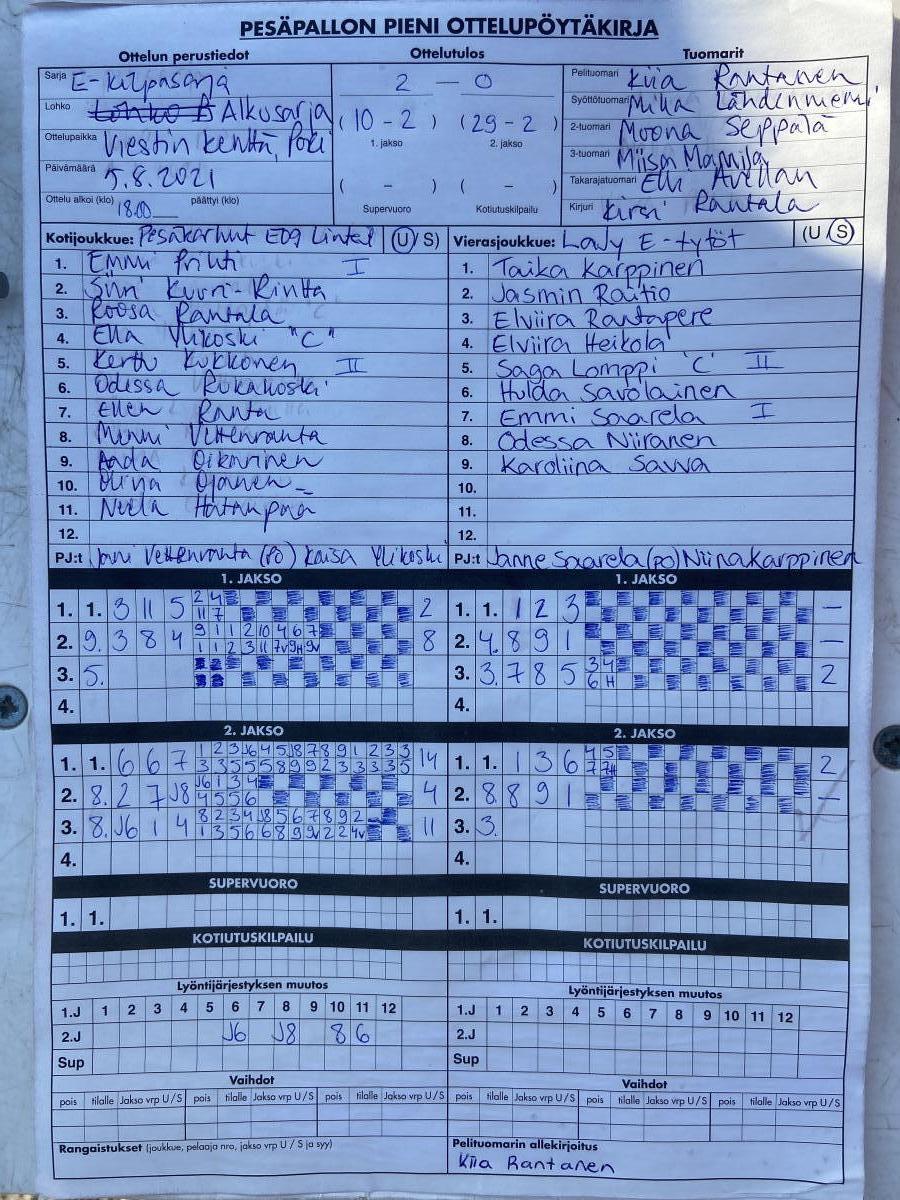 PESÄPALLON PIENI OTTELUPÖYTÄKIRJA
Ottelun perustiedot Ottelutulos Tuomarit
Sarja E-kilpasarja
Lohko Lohko B Alkusarja
Ottelupaikka Viestin kenttä, Pori
Päivämäärä 5.8.2021
Ottelu alkoi (klo) 18.00 päättyi (klo)
2 — 0
(10 - 2) (29 - 2)
1. jakso 2. jakso
( - ) ( - )
Supervuoro Kotiutuskilpailu
Pelituomari Kiia Rantanen
Syöttötuomari Milla Lähdenniemi
2-tuomari Moona Seppälä
3-tuomari Miisa Mannila
Takarajatuomari Elli Avellan
Kirjuri Kirsi Rantala
Kotijoukkue: Pesäkarhut E09 Lintel (U/S)
1. Emmi Prihti I
2. Siiri Kuuri-Rintta
3. Roosa Rantala
4. Ella Ylikoski "C"
5. Kerttu Kukkonen II
6. Odessa Rukakoski
7. Ellen Ranta
8. Minni Vettenranta
9. Aada Oikarinen
10. Oliva Ojanen
11. Neela Hatanpää
12.
PJ:t Jani Vettenranta (po) Kaisa Ylikoski
Vierasjoukkue: Lady E-tytöt (U/S)
1. Taika Karppinen
2. Jasmin Raitio
3. Elviira Rantapere
4. Elviira Heikola
5. Saga Lomppi 'C' II
6. Hulda Savolainen
7. Emmi Saarela I
8. Odessa Niiranen
9. Karoliina Savva
10.
11.
12.
PJ:t Janne Saarela (po) Niina Karppinen
1. JAKSO
1. 1. 3 11 5 2 4 2
11 7
2. 9. 3 8 4 9 1 1 2 10 4 6 7 8
1 1 2 3 11 7v 9H 9v
3. 5.
4.
1. JAKSO
1. 1. 1 2 3 —
2. 4. 8 9 1 —
3. 3. 7 8 5 3 4 2
6 H
4.
2. JAKSO
1. 1. 6 6 7 1 2 3 J6 4 5 J8 7 8 9 1 2 3 3 14
3 3 5 5 5 8 9 9 2 3 3 3 3 5
2. 8. 2 7 J8 J6 1 3 4 4
4 5 5 6
3. 8. J6 1 4 8 2 3 4 J8 5 6 7 8 9 2 11
1 3 5 6 6 8 9 9v 2 2 4v
4.
2. JAKSO
1. 1. 1 3 6 4 5 2
7 7H
2. 8. 8 9 1 —
3. 3.
4.
SUPERVUORO
1. 1.
SUPERVUORO
1. 1.
KOTIUTUSKILPAILU
KOTIUTUSKILPAILU
Lyöntijärjestyksen muutos
1.J 1 2 3 4 5 6 7 8 9 10 11 12
2.J J6 J8 8 6
Sup
Lyöntijärjestyksen muutos
1.J 1 2 3 4 5 6 7 8 9 10 11 12
2.J
Sup
Vaihdot
pois tilalle Jakso vrp U/S pois tilalle Jakso vrp U/S pois tilalle Jakso vrp U/S
Vaihdot
pois tilalle Jakso vrp U/S pois tilalle Jakso vrp U/S pois tilalle Jakso vrp U/S
Rangaistukset (joukkue, pelaaja nro, jakso vrp U / S ja syy)
Pelituomarin allekirjoitus
Kiia Rantanen